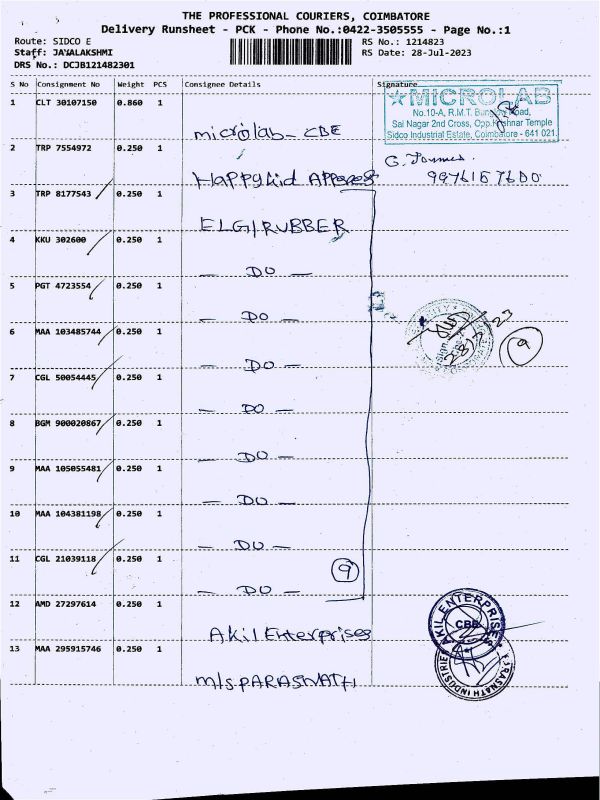 THE PROFESSIONAL COURIERS, COIMBATORE
Delivery Runsheet - PCK - Phone No.:0422-3505555 - Page No.:1
Route: SIDCO E RS No.: 1214823
Staff: JAYALAKSHMI RS Date: 28-Jul-2023
DRS No.: DCJB121482301
S No Consignment No Weight PCS Consignee Details Signature
1 CLT 30107150 0.860 1 microlab - CBE
MICROLAB
No.10-A, R.M.T. Bungalow Road,
Sai Nagar 2nd Cross, Opp.Krishnar Temple
Sidco Industrial Estate, Coimbatore - 641 021.
2 TRP 7554972 0.250 1 Happykid
3 TRP 8177543 0.250 1 ELGI RUBBER
4 KKU 302600 0.250 1 - DO -
5 PGT 4723554 0.250 1 - DO -
6 MAA 103485744 0.250 1 - DO -
7 CGL 50054445 0.250 1 - DO -
8 BGM 900020867 0.250 1 - DO -
9 MAA 105055481 0.250 1 - DO -
10 MAA 104381198 0.250 1 - DO -
11 CGL 21039118 0.250 1 - DO -
9
9
12 AMD 27297614 0.250 1 Akil Enterprises
AKIL ENTERPRISES
CBE
13 MAA 295915746 0.250 1 M/s.PARASNATH
PARASNATH INDUSTRIES